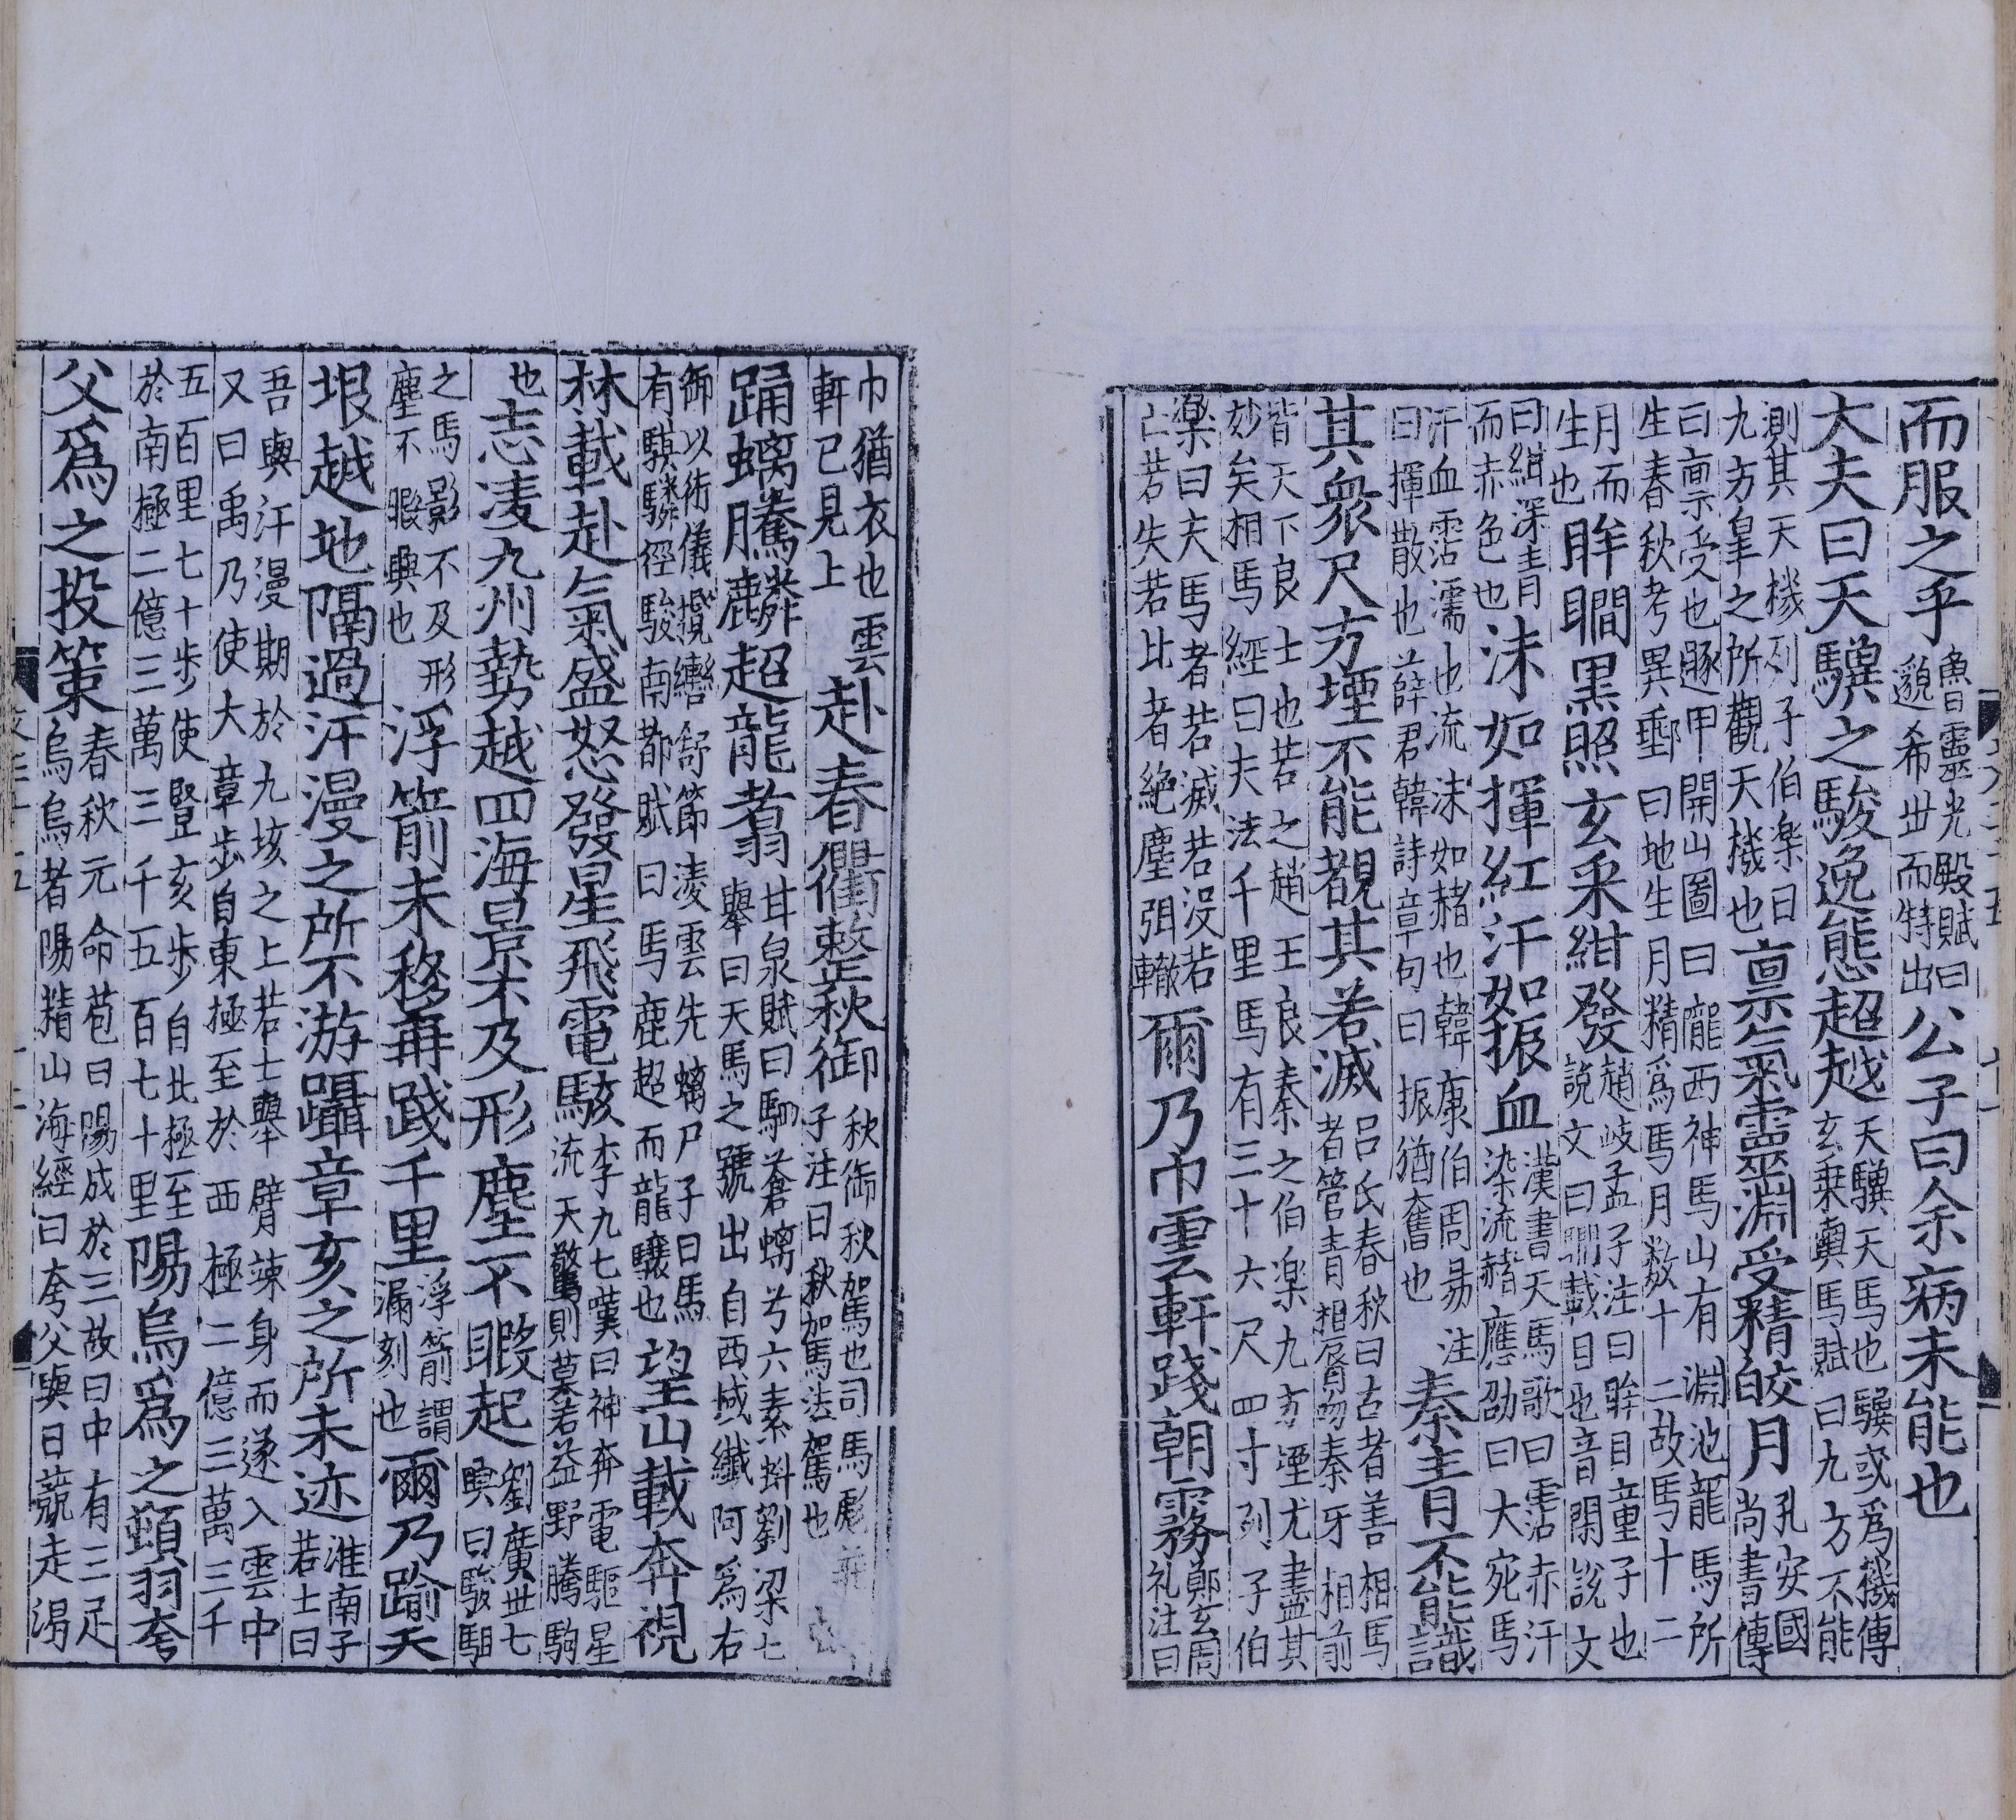 而服之乎魯靈光殿賦曰邈希世而特出公子曰余病未能也
大夫曰天驥之駿逸態超越天驥天馬也驥或爲機傳玄乗輿馬賦曰九方不能
測其天機列子伯樂曰九方皐之所觀天機也稟氣靈淵受精皎月孔安國尚書傳
曰稟受也遯甲開山圖曰隴西神馬山有淵池龍馬所生春秋考異郵曰地生月精爲馬月數十二故馬十二
月而生也眸瞷黑照玄采紺發趙岐孟子注曰眸目童子也說文曰瞷戴目也音閑說文
曰紺深青而赤色也沬如揮紅汗如振血漢書天馬歌曰霑赤汗染流赭應劭曰大宛馬
汗血霑濡也流沬如赭也韓康伯周易注曰揮散也薛君韓詩章句曰振猶奮也秦青不能識
其衆尺方堙不能覩其若滅呂氏春秋曰古者善相馬者管青相脣吻秦牙相前
皆天下良士也若之趙王良秦之伯樂九方堙尤盡其妙矣相馬經曰夫法千里馬有三十六尺四寸列子伯
樂曰天馬者若滅若没若亡若失若比者絶塵弭轍爾乃巾雲軒踐朝霧鄭玄周礼注曰
巾猶衣也雲軒已見上赴春衢整秋御秋御秋駕也司馬彪莊子注曰秋駕法駕也
踊螭騰麟超龍翥甘泉賦曰駟蒼螭兮六素虯劉梁七舉曰天馬之號出自西域纖阿爲右
御以術儀攬轡舒節淩雲先螭尸子曰馬有騏驎徑駿南都賦曰馬鹿超而龍驤也望山載奔視
林載赴氣盛怒發星飛電駭李尤七嘆曰神奔電驅星流天驚則莫若益野騰駒
也志淩九州勢越四海景不及形塵不暇起劉廣世七興曰駿駔
之馬影不及形塵不暇興也浮箭未移再踐千里浮箭謂漏刻也爾乃踰天
垠越地隔過汗漫之所不游躡章亥之所未迹淮南子若士曰
吾與汗漫期於九垓之上若士舉臂竦身而遂入雲中又曰禹乃使大章步自東極至於西極二億三萬三千
五百里七十步使豎亥步自北極至於南極二億三萬三千五百七十里陽烏爲之頓羽夸
父爲之投策春秋元命苞曰陽成於三故曰中有三足烏烏者陽精山海經曰夸父與日競走渴